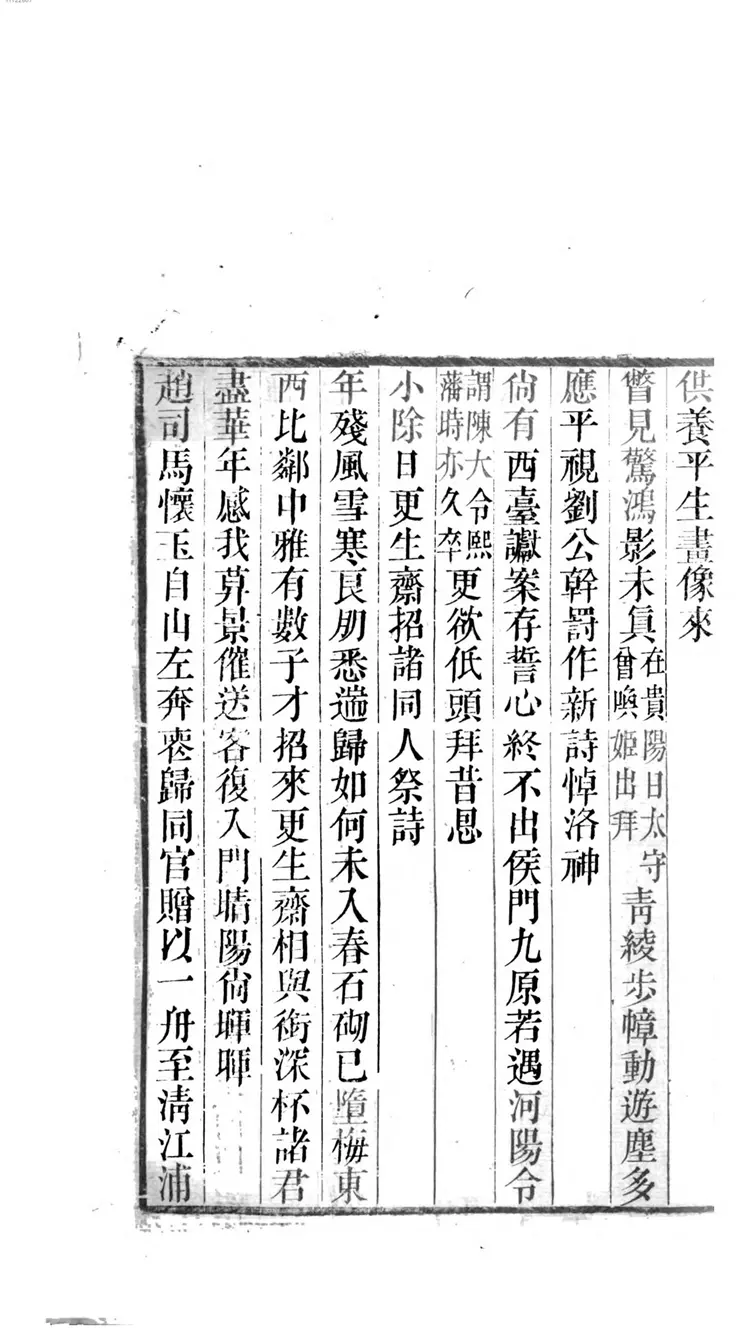 供養平生畫像來
瞥見驚鴻影未眞在貴陽日太守曾喚姬出拜靑綾步幛動遊塵多
應平視劉公幹罸作新詩悼洛神
尙有西臺讞案存誓心終不出侯門九原若遇河陽令
謂陳大令熙藩時亦久卒更欲低頭拜昔恩
小除日更生齋招諸同人祭詩
年殘風雪寒良朋悉遄歸如何未入春石砌已墮梅東
西比鄰中雅有數子才招來更生齋相與銜深杯諸君
盡華年感我萛景催送客復入門晴陽尙暉暉
趙司馬懷玉自山左奔喪歸同官贈以一舟至淸江浦